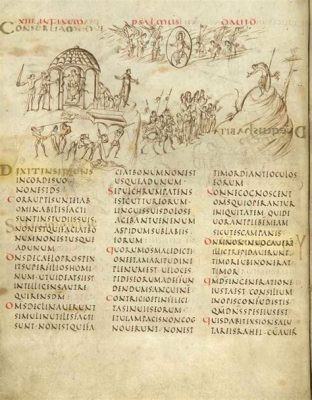 XIII IN FINEM PSALMUS DAVID
DIXIT INSIPIENS
INCORDESUO
NONESTDS
CORRUPTISUNTETAB
OMINABILESFACTI
SUNTINSTUDIISSUIS
NONESTQUIFACIATBO
NUMNONESTUSQUE
ADUNUM
DNSDECAELOPROSPEX
ITSUPERFILIOSHOMI
NUMUTVIDEATSIEST
INTELLEGENSAUTRE
QUIRENSDM
OMSDECLINAVERUNT
SIMULINUTILESFACTI
SUNTNONESTQUIFA
CIATBONUMNONEST
USQUEADUNUM
SEPULCHRUMPATENS
ESTGUTTUREORUM
LINGUISSUISDOLOSE
AGEBANTVENENUM
ASPIDUMSUBLABIIS
EORUM
QUORUMOSMALEDICTI
ONEETAMARITUDINE
PLENUMEST VELOCES
PEDESEORUMADEFFUN
DENDUMSANGUINE
CONTRITIOETINFELICI
TASINVIISEORUM
ETVIAMPACISNONCOG
NOVERUNT NONEST
TIMORDIANTEOCULOS
EORUM
NONNECOGNOSCENT
OMSQUIOPERANTUR
INIQUITATEM QUIDE
VORANTPLEBEMMEAM
SICUTESCAMPANIS
DNMNONINVOCAVER
ILLICTREPIDAVERUNT
TIMOREUBINONERAT
TIMOR
QMDSINGENERATIONE
IUSTAEST CONSILIUM
INOPISCONFUDISTIS
QMDNSSPESEIUSEST
QUISDABITEXSIONSALU
TAREISRAHEL CUAVER